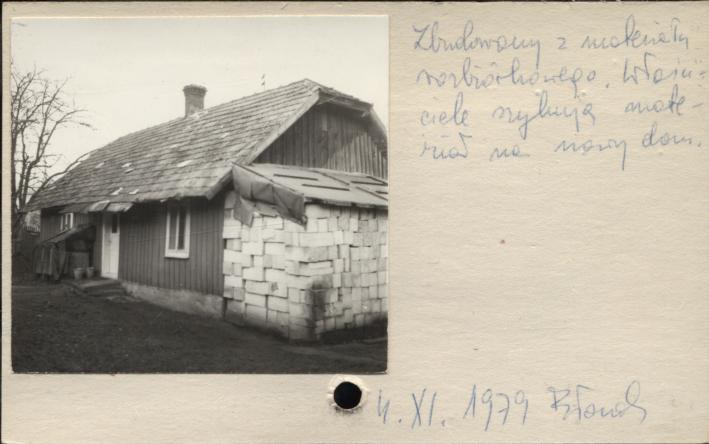 Zbudowany z materiału
rozbiórkowego. Właści=
ciele szykują mate-
riał na nowy dom.
4. XI. 1979